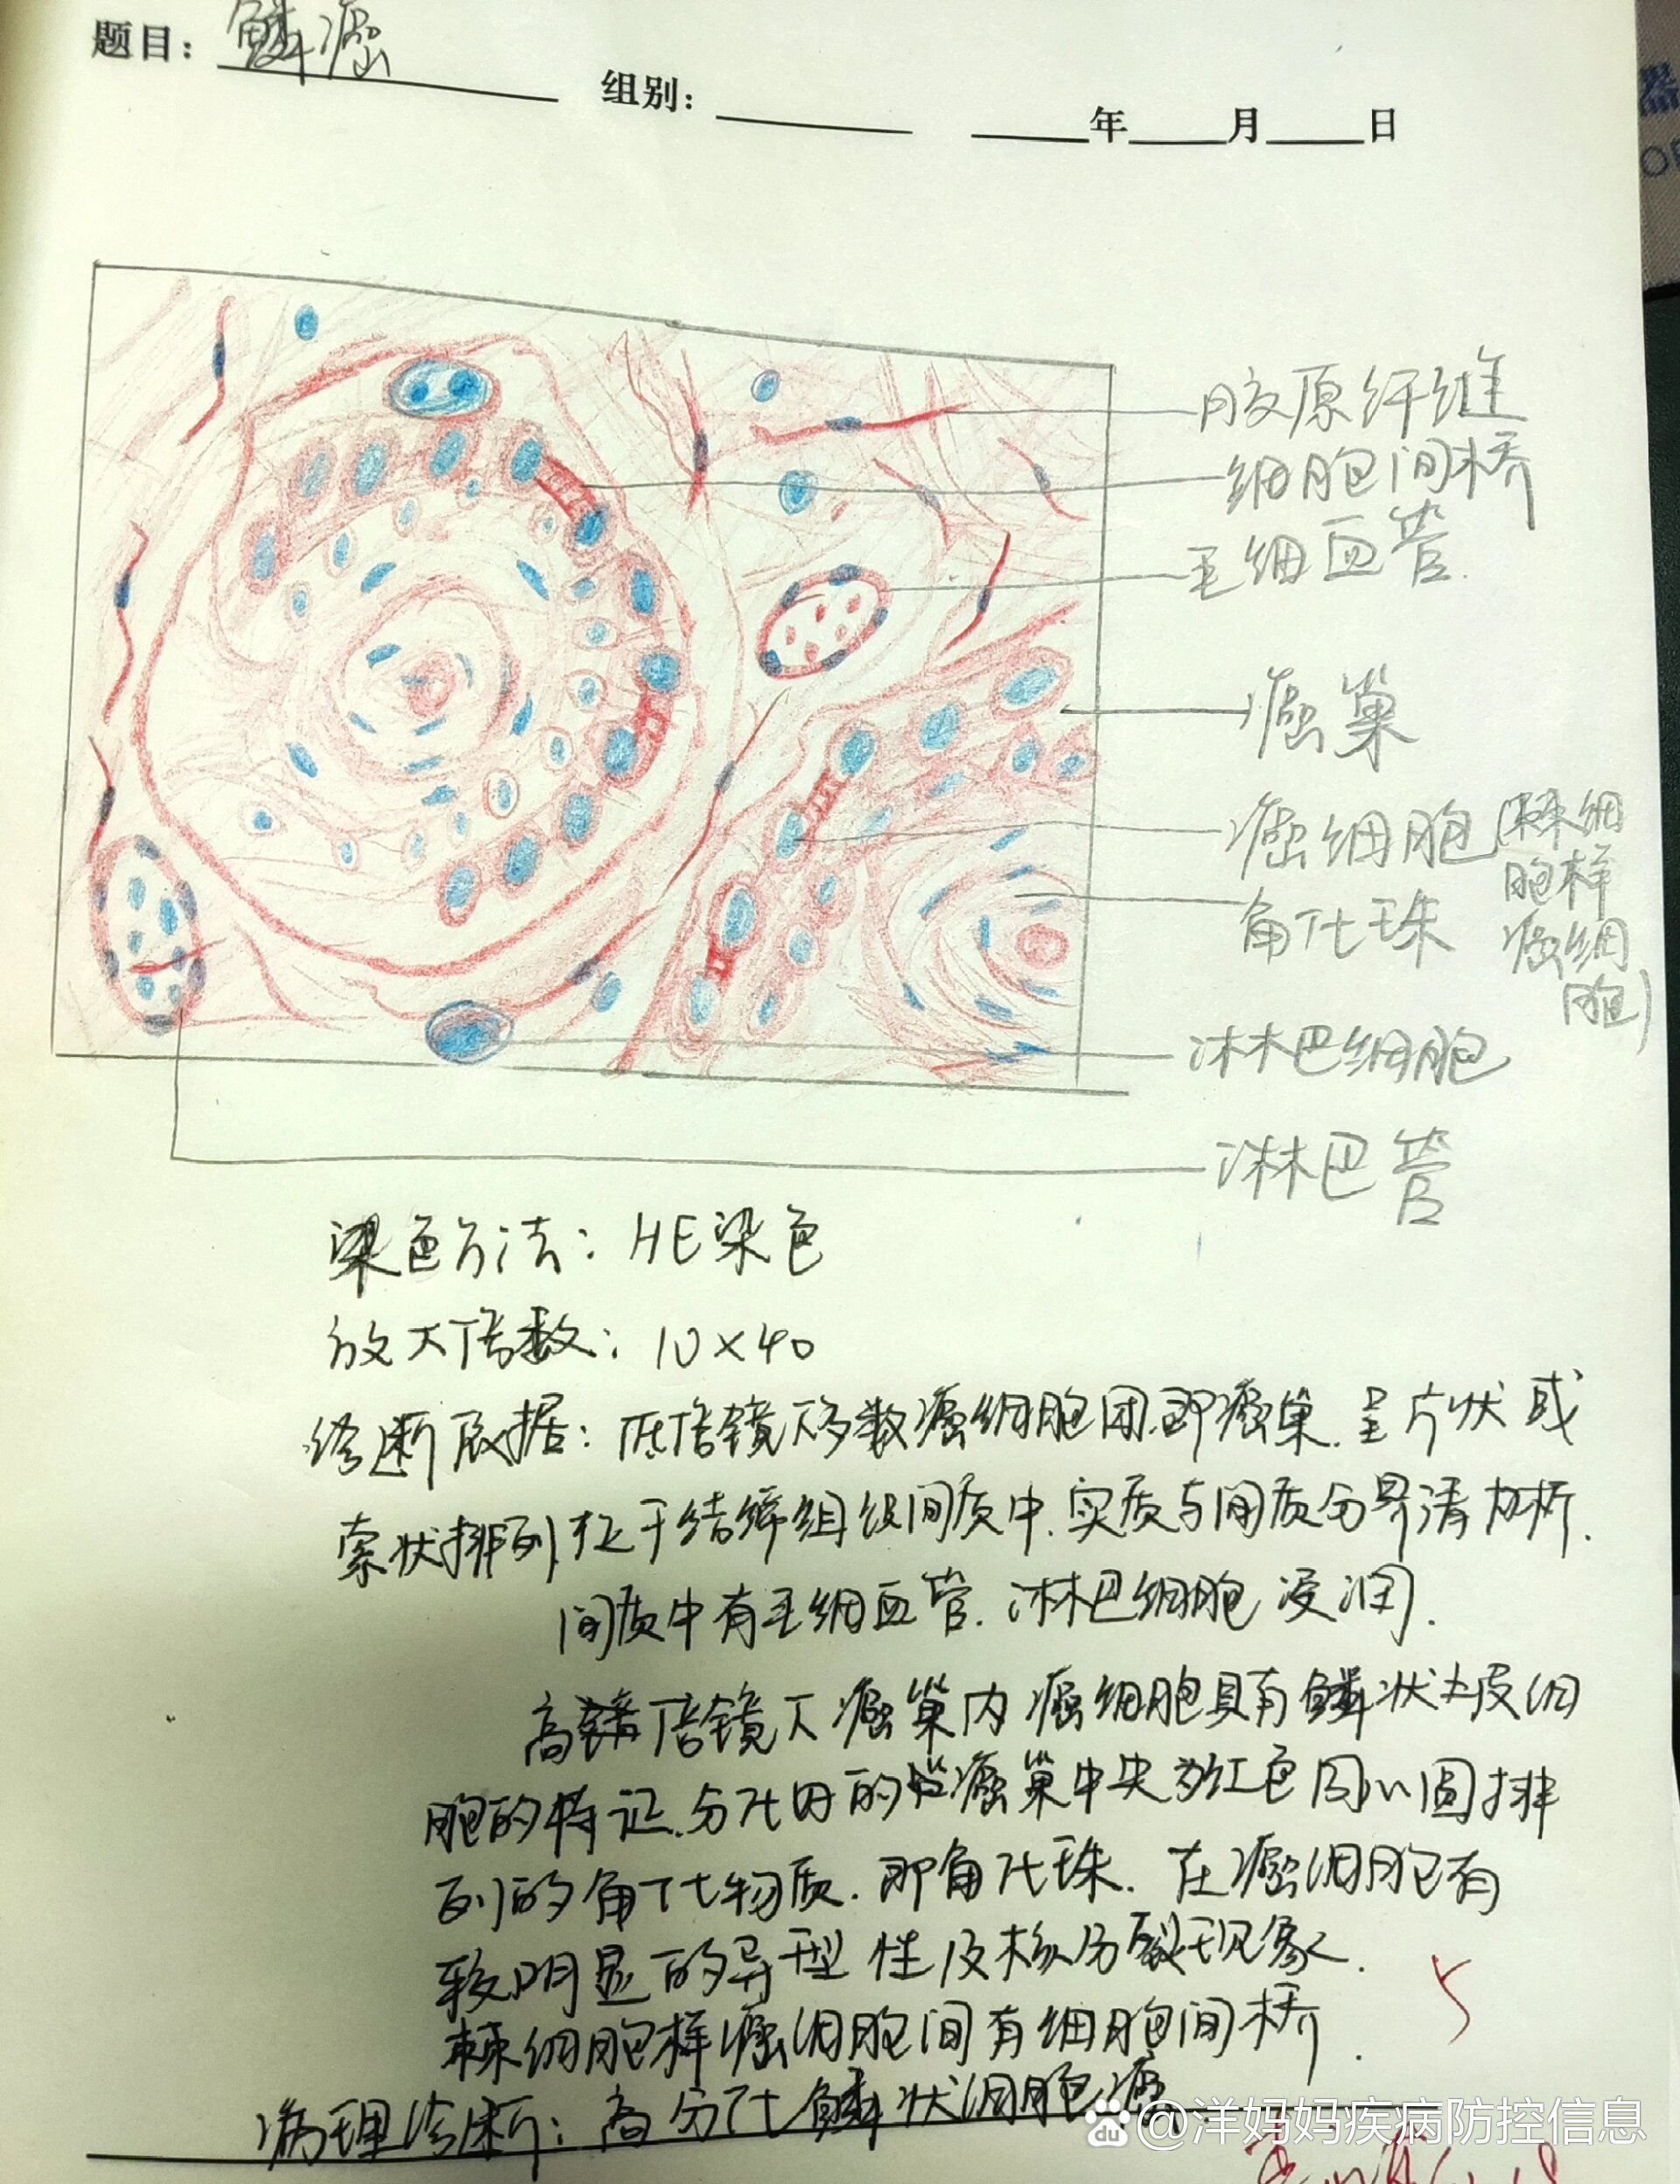 题目：鳞癌
组别：
年 月 日
胶原纤维
细胞间桥
毛细血管
癌巢
癌细胞(棘细
胞样
癌细
胞)
角化珠
淋巴细胞
淋巴管
染色方法：HE染色
放大倍数：10×40
诊断依据：低倍镜下多数癌细胞团即癌巢.呈片状或
索状排列.于结缔组织间质中.实质与间质分界清晰.
间质中有毛细血管.淋巴细胞浸润.
高倍镜下癌巢内癌细胞具有鳞状上皮细
胞的特征.分化好的癌巢中央为红色同心圆排
列的角化物质.即角化珠.在癌细胞有
较明显的异型性及核分裂现象.
棘细胞样癌细胞间有细胞间桥.
5
病理诊断：高分化鳞状细胞癌
Bai du @洋妈妈疾病防控信息